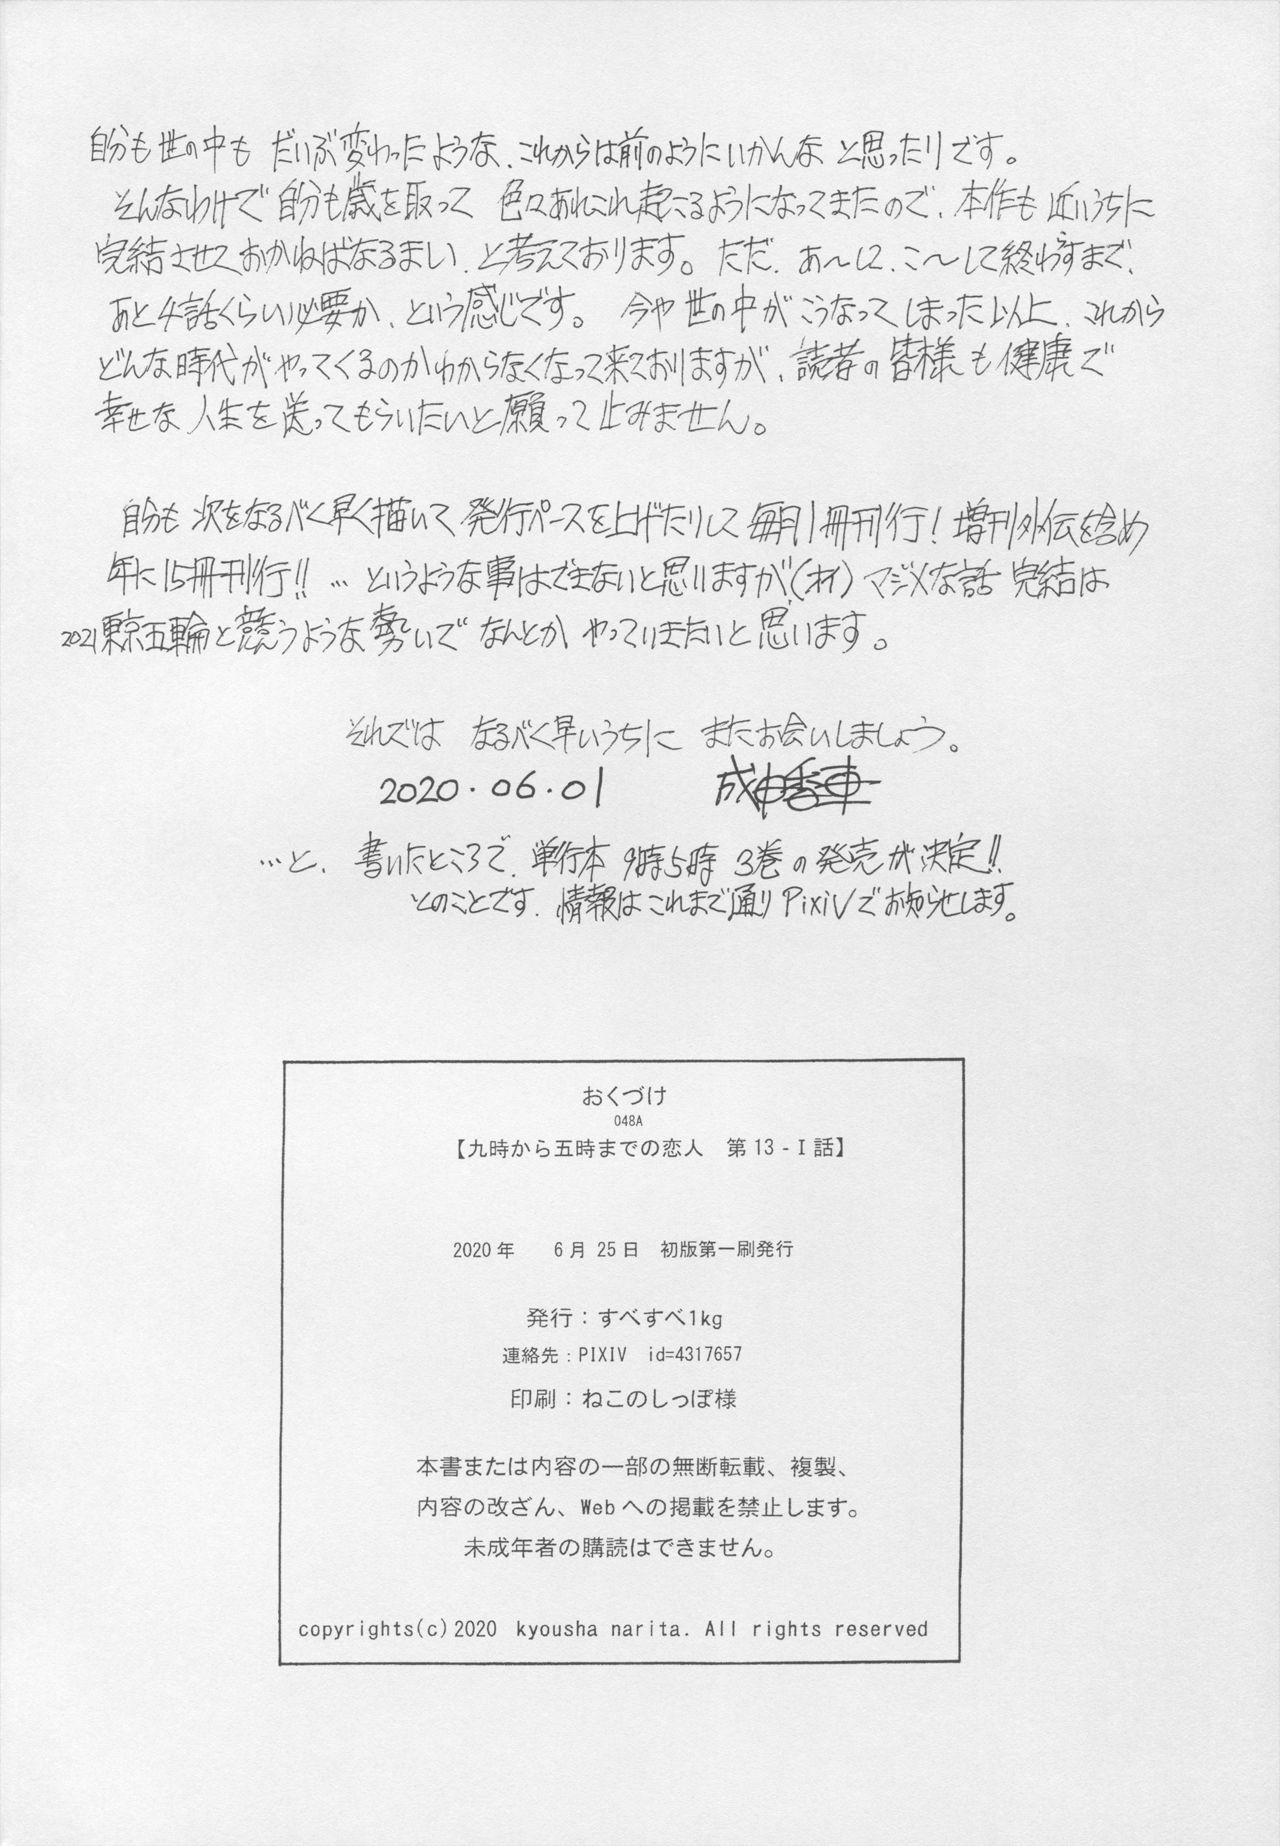 自分も世の中も だいぶ変わったような、これからは前のようにいかんな と思ったりです。
そんなわけで自分も歳を取って 色々あれこれ起こるようになってきたので、本作も近いうちに
完結させておかねばなるまい、と考えております。ただ、あ〜して、こ〜して終わらすまで、
あと4話くらい必要か、という感じです。 今や世の中がこうなってしまった以上、これから
どんな時代がやってくるのかわからなくなって来ておりますが、読者の皆様も健康で
幸せな人生を送ってもらいたいと願って止みません。
自分も次をなるべく早く描いて発行ペースを上げたりして毎月1冊刊行！増刊外伝を含め
年に15冊刊行!! …というような事はできないと思いますが(オイ) マジメな話 完結は
2021東京五輪と競うような勢いで なんとか やっていきたいと思います。
それでは なるべく早いうちに またお会いしましょう。
2020.06.01 成田香車
…と、書いたところで、単行本 9時5時 3巻の発売が決定!!
とのことです、情報はこれまで通りPixivでお知らせします。
おくづけ
048A
【九時から五時までの恋人 第13-I話】
2020年 6月25日 初版第一刷発行
発行：すべすべ1kg
連絡先：PIXIV id=4317657
印刷：ねこのしっぽ様
本書または内容の一部の無断転載、複製、
内容の改ざん、Webへの掲載を禁止します。
未成年者の購読はできません。
copyrights(c)2020 kyousha narita. All rights reserved